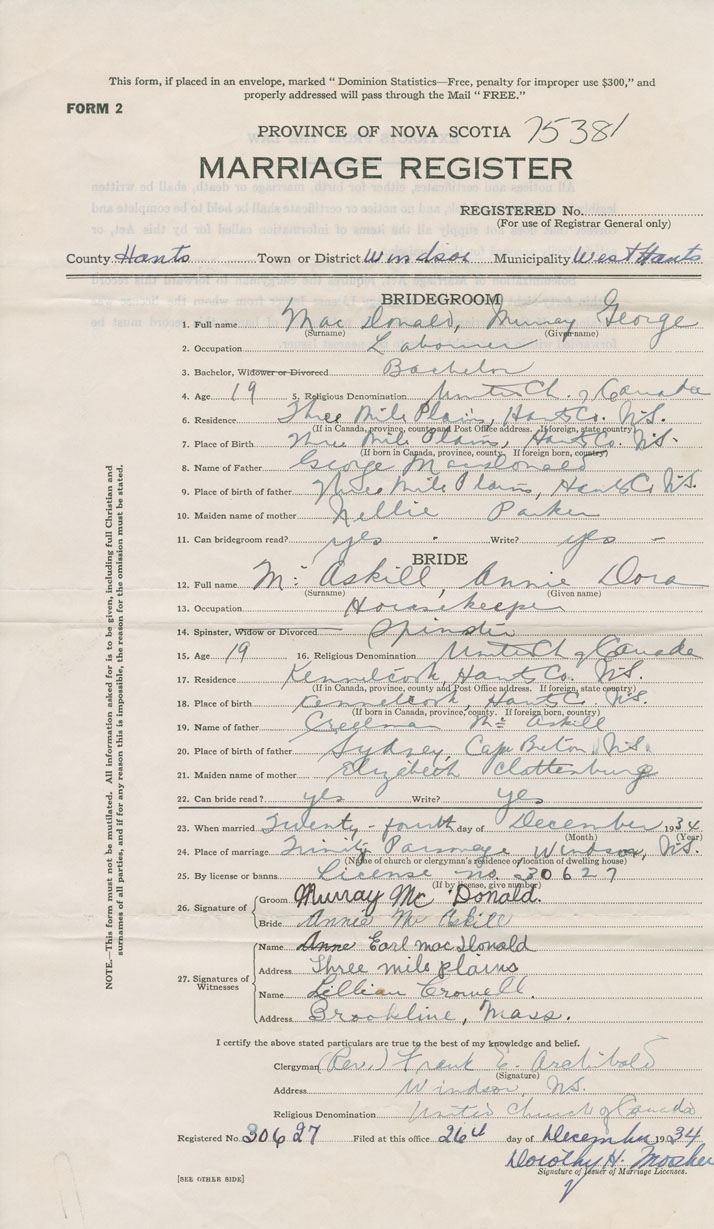 This form, if placed in an envelope, marked " Dominion Statistics—Free, penalty for improper use $300," and
properly addressed will pass through the Mail " FREE."
FORM 2
PROVINCE OF NOVA SCOTIA 75381
MARRIAGE REGISTER
REGISTERED No.
(For use of Registrar General only)
County Hants Town or District Windsor Municipality West Hants
BRIDEGROOM
1. Full name Mac Donald, Murray George
(Surname) (Given name)
2. Occupation Labourer
3. Bachelor, Widower or Divorced Bachelor
4. Age 19 5. Religious Denomination United Ch. of Canada
6. Residence Three Mile Plains, Hants Co. N.S.
(If in Canada, province, county and Post Office address. If foreign, state country)
7. Place of Birth Three Mile Plains, Hants Co. N.S.
(If born in Canada, province, county. If foreign born, country)
8. Name of Father George Macdonald
9. Place of birth of father Three Mile Plains, Hants Co N.S.
10. Maiden name of mother Nellie Parker
11. Can bridegroom read? yes Write? yes
BRIDE
12. Full name Mc Askill, Annie Dora
(Surname) (Given name)
13. Occupation Housekeeper
14. Spinster, Widow or Divorced Spinster
15. Age 19 16. Religious Denomination United Ch of Canada
17. Residence Kennetcook, Hants Co. N.S.
(If in Canada, province, county and Post Office address. If foreign, state country)
18. Place of birth Kennetcook, Hants C. N.S.
(If born in Canada, province, county. If foreign born, country)
19. Name of father Creelman Mc Askill
20. Place of birth of father Sydney, Cape Breton, N.S.
21. Maiden name of mother Elizabeth Clattenburg
22. Can bride read? yes Write? yes
23. When married Twenty-fourth day of December 1934
(Month) (Year)
24. Place of marriage Trinity Parsonage Windsor, N.S.
(Name of church or clergyman's residence or location of dwelling house)
25. By license or banns License no. 30627
(If by license, give number)
26. Signature of
Groom Murray Mc Donald.
Bride Annie Mc Askill
27. Signatures of Witnesses
Name Anne Earl mac Donald
Address Three mile plains
Name Lillian Crowell.
Address Brookline, Mass.
I certify the above stated particulars are true to the best of my knowledge and belief.
Clergyman (Rev.) Frank E. Archibald
(Signature)
Address Windsor, N.S.
Religious Denomination United Church of Canada
Registered No. 30627 Filed at this office 26th day of December 1934
Dorothy H. Mosher
Signature of Issuer of Marriage Licenses.
[SEE OTHER SIDE]
NOTE.—This form must not be mutilated. All information asked for is to be given, including full Christian and
surnames of all parties, and if for any reason this is impossible, the reason for the omission must be stated.